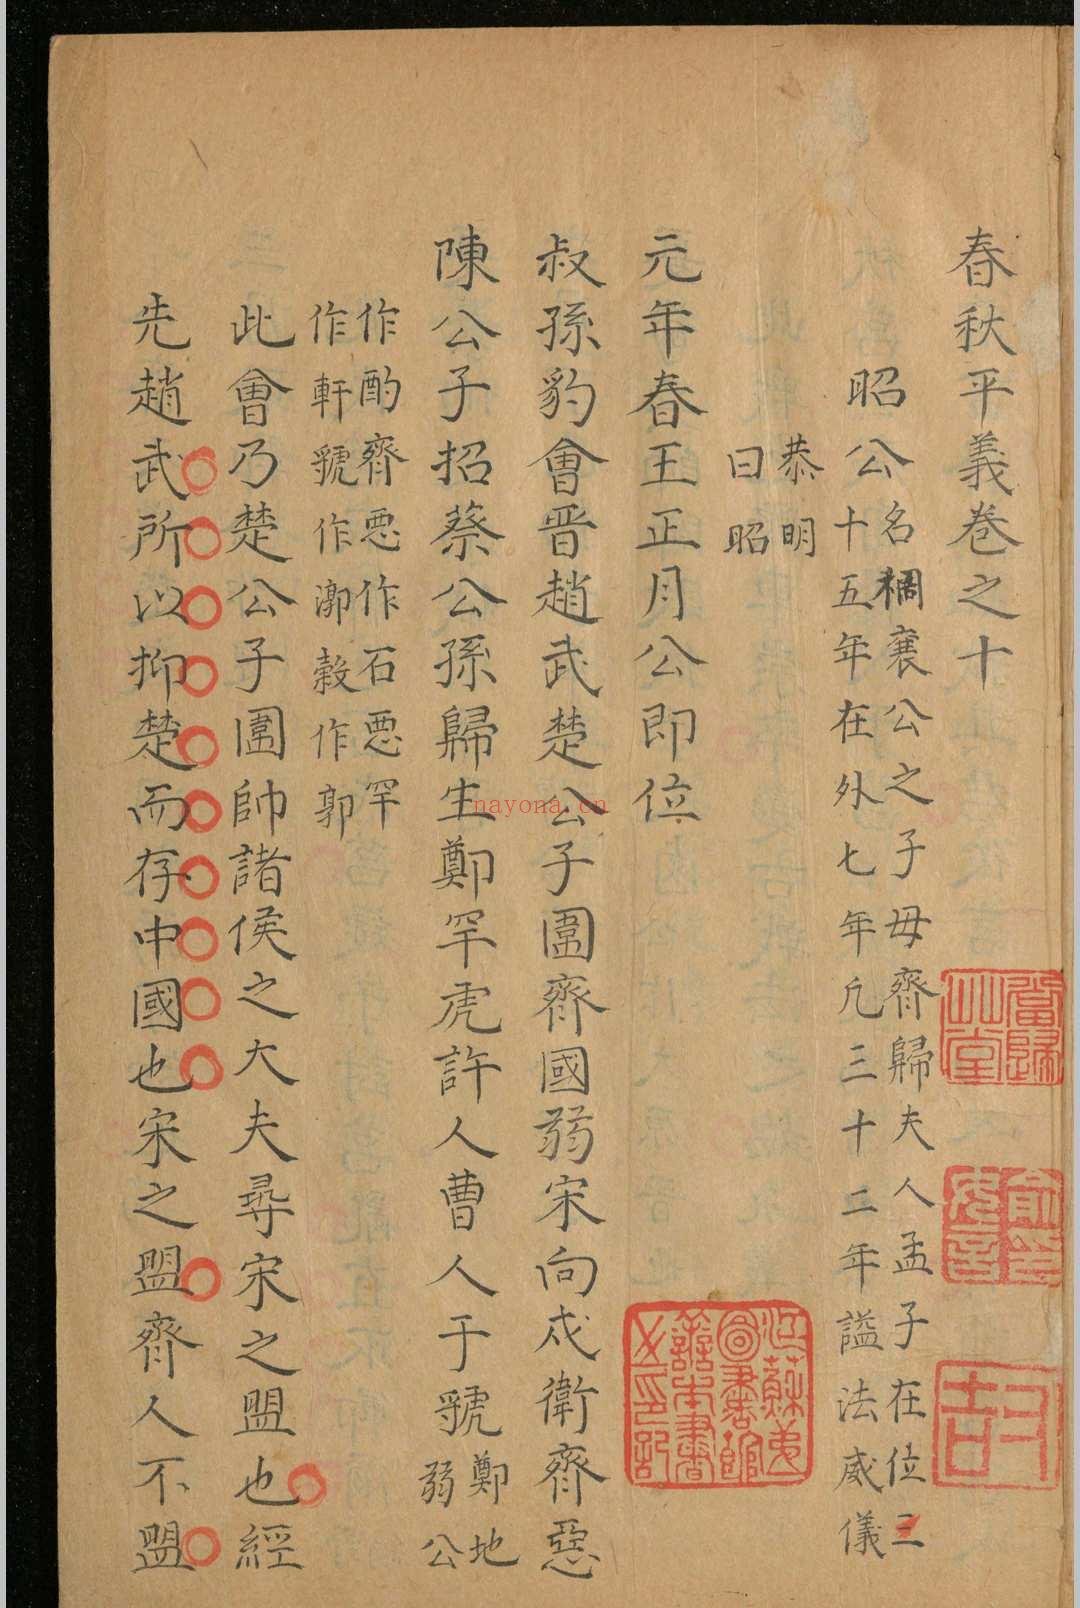 春秋平義卷之十
昭公
名裯襄公之子母齊歸夫人孟子在位三
十五年在外七年凡三十二年謚法威儀
恭明
曰昭
元年春王正月公即位
叔孫豹會晋趙武楚公子圍齊國弱宋向戍衛齊惡
陳公子招蔡公孫歸生鄭罕虎許人曹人于虢
鄭地
弱公
作酌齊惡作石惡罕
作軒虢作漷穀作郭
此會乃楚公子圍帥諸侯之大夫尋宋之盟也經
先趙武所以抑楚而存中國也宋之盟齊人不盟
當歸草堂
江蘇第一圖書館善本書之印記
nayona.cn